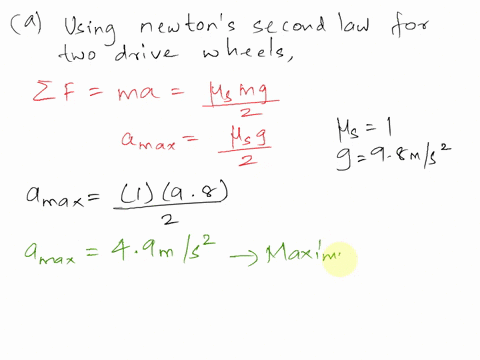 (a) Using newton's second law for
two drive wheels,
ΣF = ma = μs mg / 2
a max = μs g / 2
μs = 1
g = 9.8 m/s²
a max = (1)(9.8) / 2
a max = 4.9 m/s² → Maxim